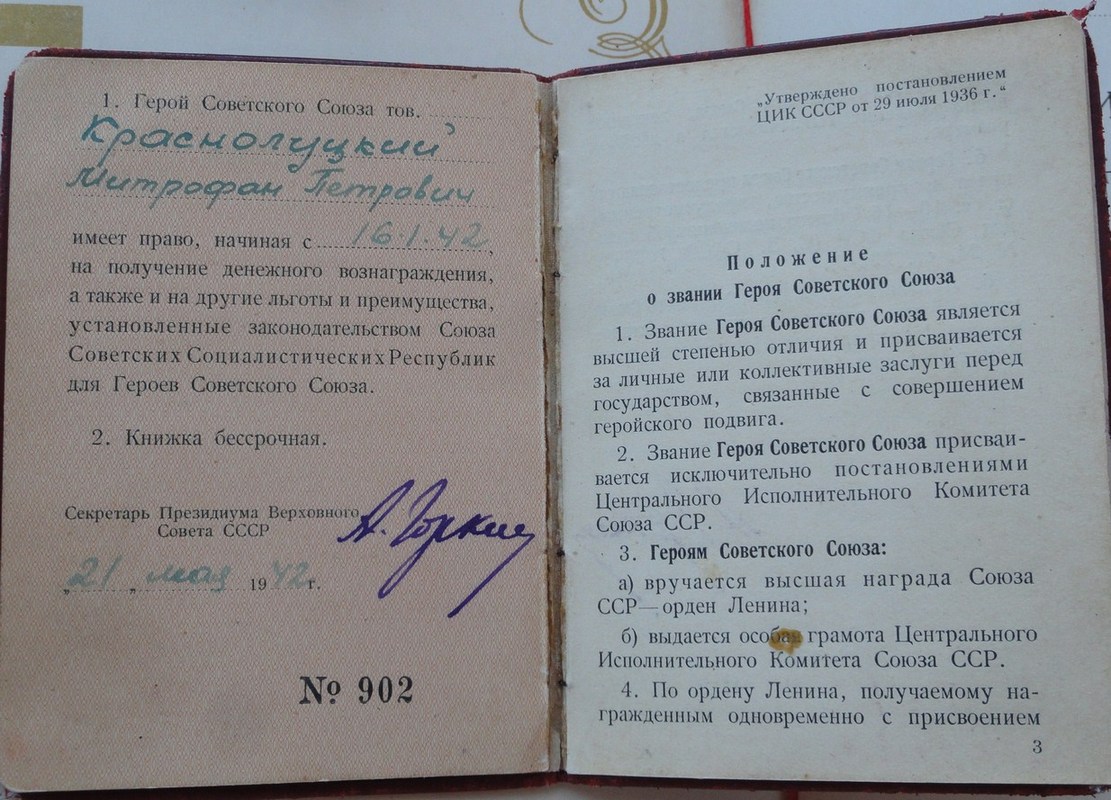 1. Герой Советского Союза тов.
Краснолуцкий
Митрофан Петрович
имеет право, начиная с 16.1.42,
на получение денежного вознаграждения,
а также и на другие льготы и преимущества,
установленные законодательством Союза
Советских Социалистических Республик
для Героев Советского Союза.
2. Книжка бессрочная.
Секретарь Президиума Верховного
Совета СССР
А. Горкин
„21„ мая 1942г.
№ 902
„Утверждено постановлением
ЦИК СССР от 29 июля 1936 г.“
Положение
о звании Героя Советского Союза
1. Звание Героя Советского Союза является
высшей степенью отличия и присваивается
за личные или коллективные заслуги перед
государством, связанные с совершением
геройского подвига.
2. Звание Героя Советского Союза присваи-
вается исключительно постановлениями
Центрального Исполнительного Комитета
Союза ССР.
3. Героям Советского Союза:
а) вручается высшая награда Союза
ССР—орден Ленина;
б) выдается особая грамота Центрального
Исполнительного Комитета Союза ССР.
4. По ордену Ленина, получаемому на-
гражденным одновременно с присвоением
3